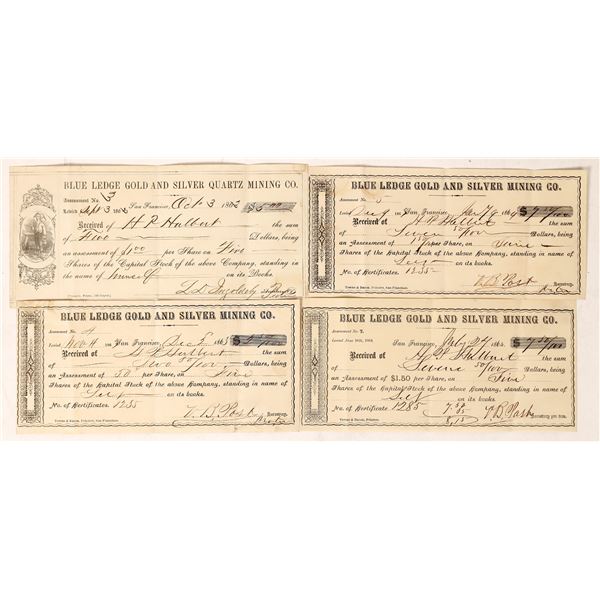 BLUE LEDGE GOLD AND SILVER QUARTZ MINING CO.
Assessment No. 3
Levied Sept 3 1863 San Francisco, Oct 3 1863 $5.00
Received of H P Hulbert the sum
of Dollars, being
an assessment of $1.00 per Share on Five
Shares of the Capital Stock of the above Company, standing in
the name of on its Books.
BLUE LEDGE GOLD AND SILVER MINING CO.
Assessment No. 5
Levied San Francisco, 1864 $7 50/100
Received of H. P. Hulbert the sum
of Seven 50/100 Dollars, being
an Assessment of per Share, on Five
Shares of the Capital Stock of the above Company, standing in name of
Self on its books.
No. of Certificates. 1285
V. B. Post Secretary,
Towne & Bacon, Printers, San Francisco.
BLUE LEDGE GOLD AND SILVER MINING CO.
Assessment No. 4
Levied Nov 4 San Francisco, Dec 1863
Received of H P Hulbert the sum
of Dollars, being
an Assessment of 50 per Share, on Five
Shares of the Capital Stock of the above Company, standing in name of
Self on its books.
No. of Certificates. 1285
V. B. Post Secretary,
Towne & Bacon, Printers, San Francisco.
BLUE LEDGE GOLD AND SILVER MINING CO.
Assessment No.
Levied San Francisco, 27 186 $7 50/100
Received of H. P. Hulbert the sum
of Seven 50/100 Dollars, being
an Assessment of $1.50 per Share, on Five
Shares of the Capital Stock of the above Company, standing in name of
Self on its books.
No. of Certificate 1285 7.50
V. B. Post Secretary pro tem.
Towne & Bacon, Printers, San Francisco.